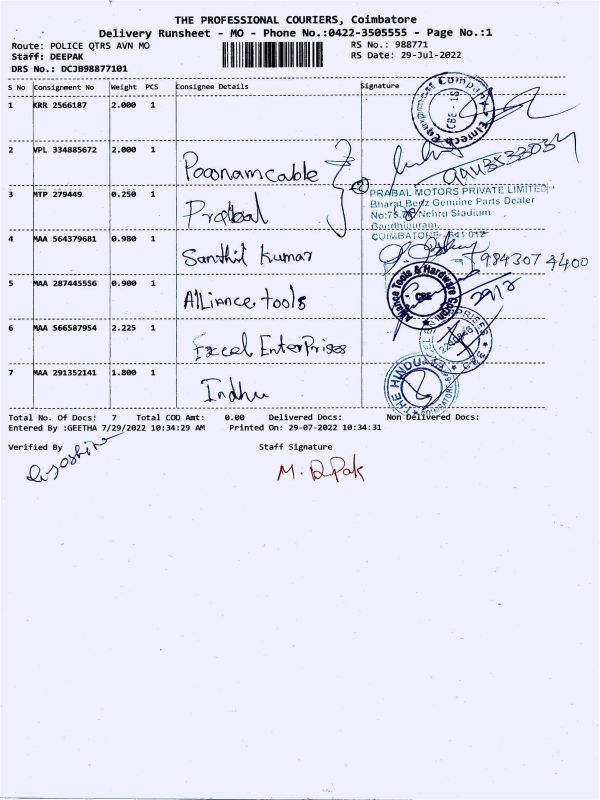 THE PROFESSIONAL COURIERS, Coimbatore
Delivery Runsheet - MO - Phone No.:0422-3505555 - Page No.:1
Route: POLICE QTRS AVN MO RS No.: 988771
Staff: DEEPAK RS Date: 29-Jul-2022
DRS No.: DCJB98877101
S No Consignment No Weight PCS Consignee Details Signature
1 KRR 2566187 2.000 1
Equipment Company Eintech CBE - 18
2 VPL 334885672 2.000 1 Poonamcable
3 MTP 279449 0.250 1 Prabal
PRABAL MOTORS PRIVATE LIMITED
Bharat Benz Genuine Parts Dealer
No:75,76 Nehru Stadium
Gandhipuram,
COIMBATORE - 641 012
4 MAA 564379681 0.980 1 Santhil Kumar
984307 4400
5 MAA 287445556 0.900 1 Alliance tools
Alliance Tools & Hardware CBE
29/2
6 MAA 566587954 2.225 1 Excel EnterPrises
7 MAA 291352141 1.800 1 Indhu
THE HINDU COIMBATORE
Total No. Of Docs: 7 Total COD Amt: 0.00 Delivered Docs: Non Delivered Docs:
Entered By :GEETHA 7/29/2022 10:34:29 AM Printed On: 29-07-2022 10:34:31
Verified By Staff Signature
M. D Pak